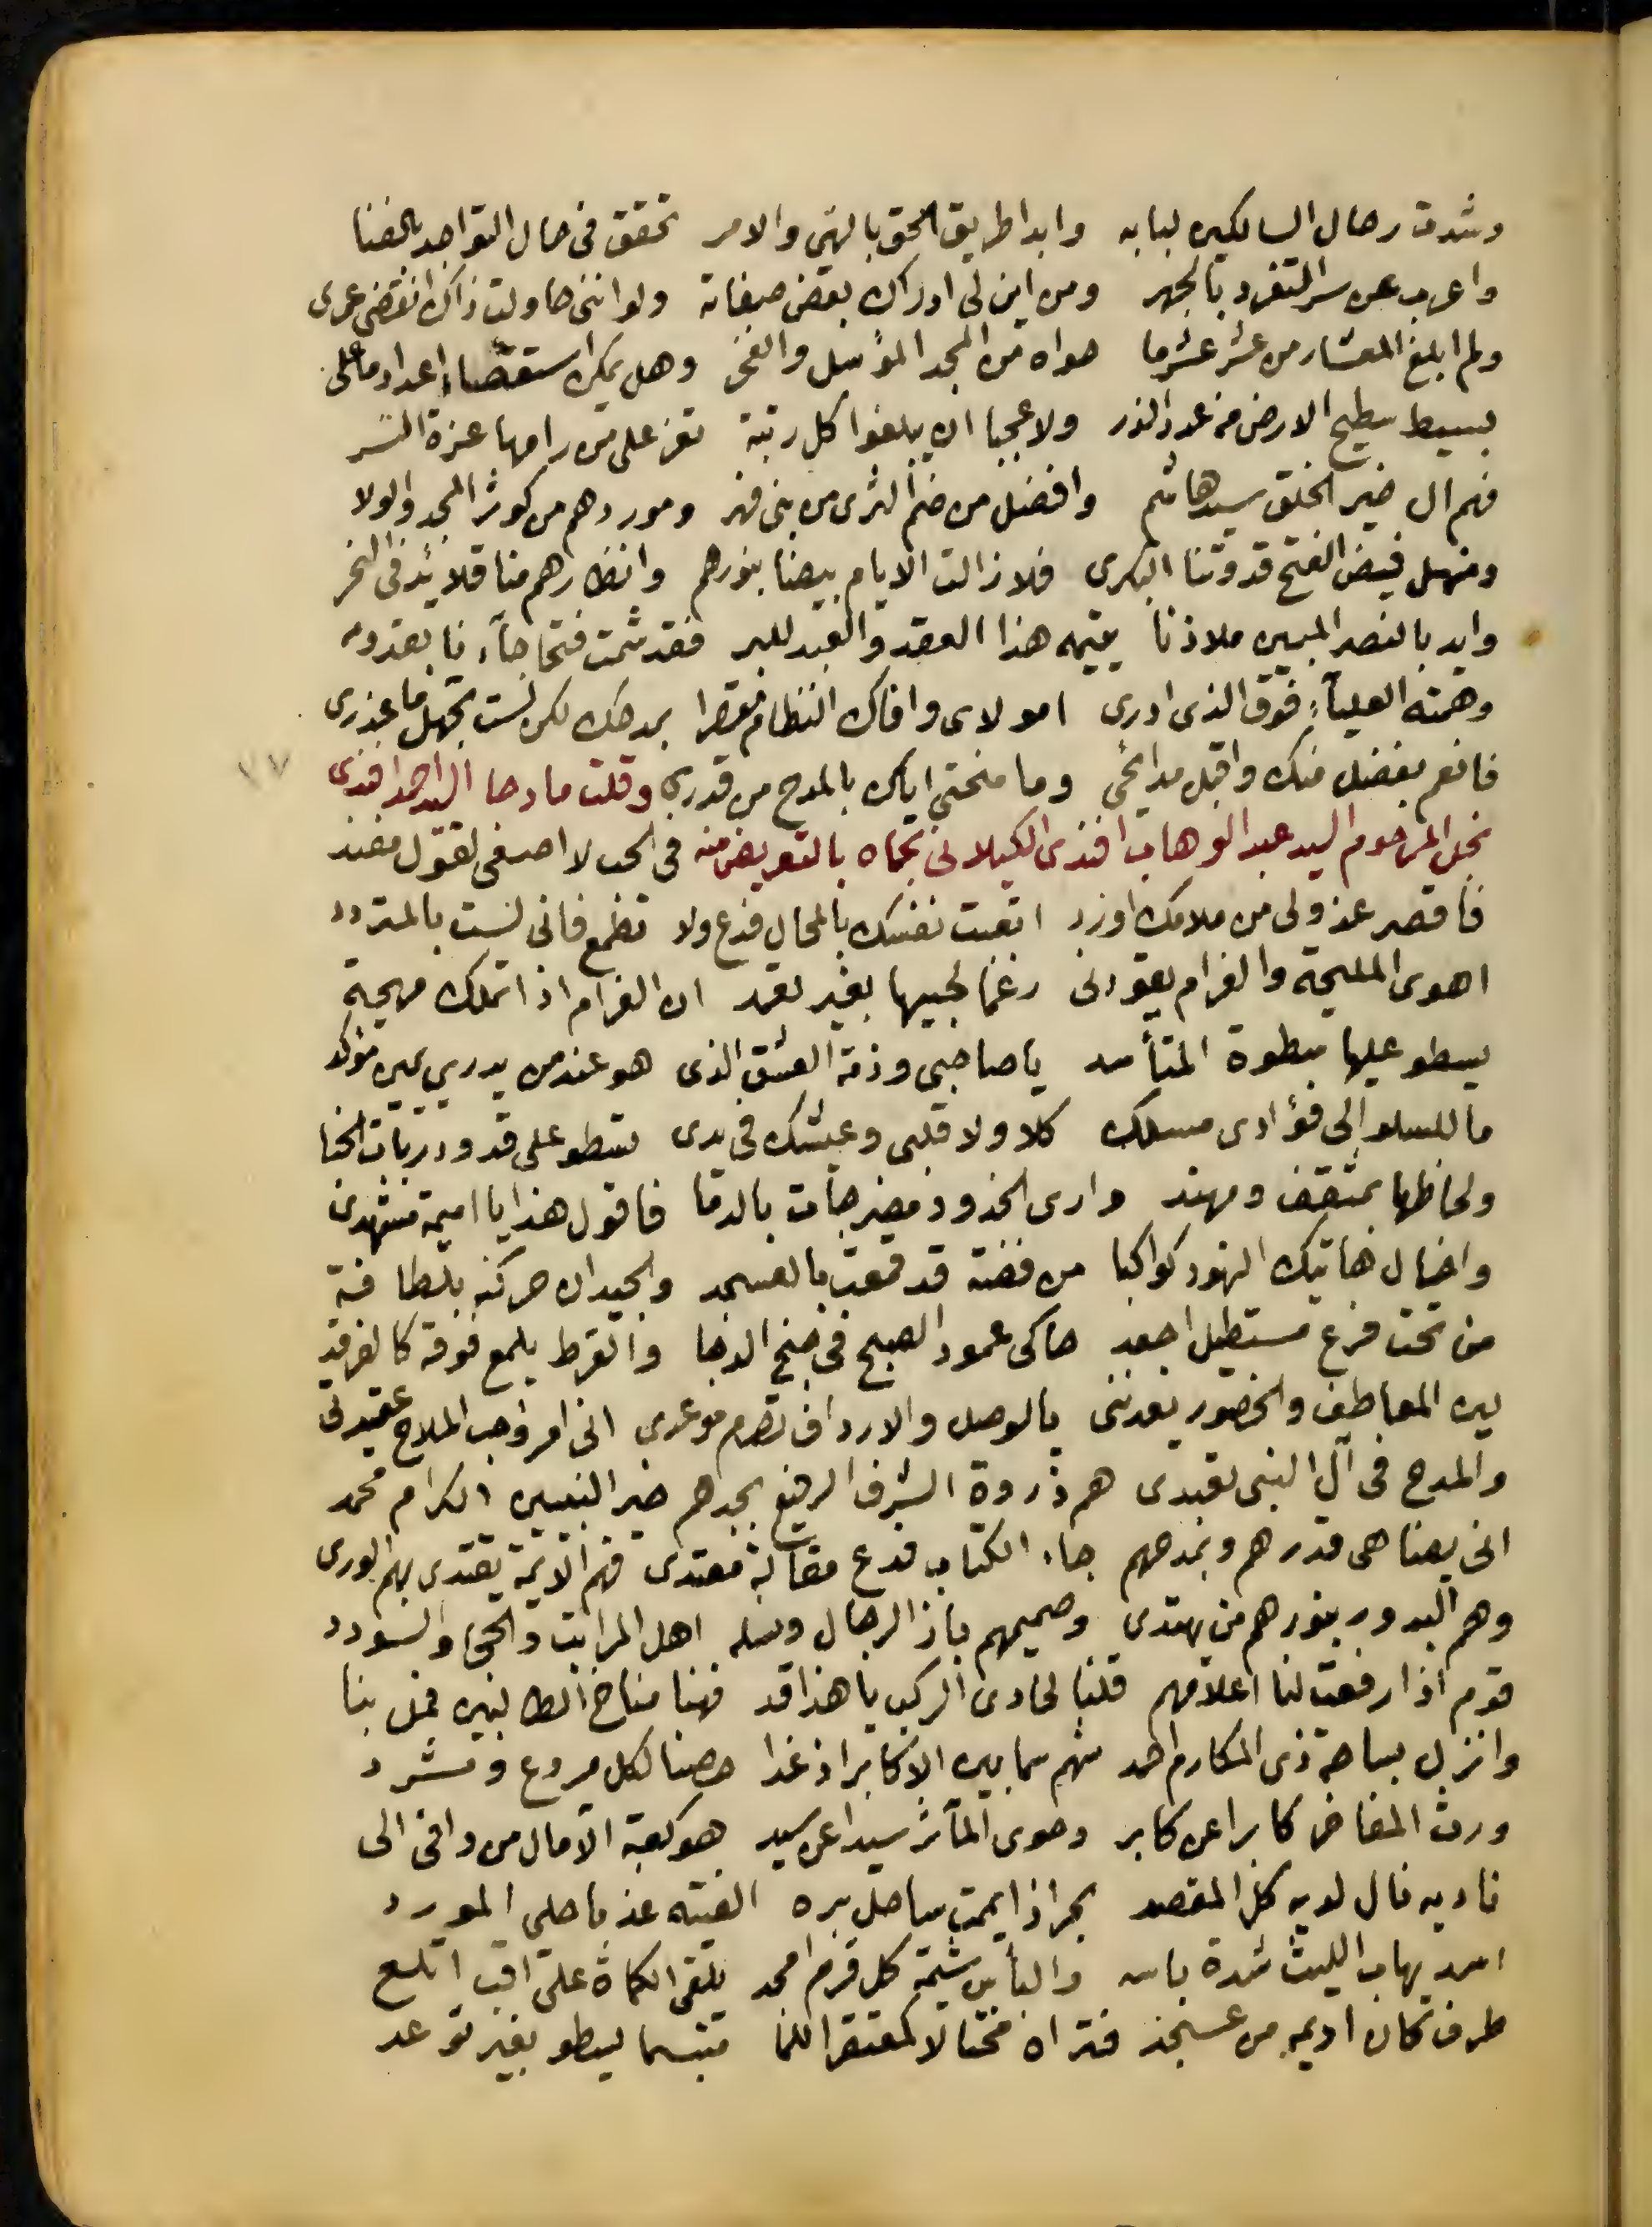 وشدت رحال السالكين لبابه وابدا طريق الحق بالنهي والامر تحقق في حال التواجد بالفنا
واعرب عن سر التفرد بالجهر ومن اين لي ادراك بعض صفاته ولو انني حاولت ذاك انقضى عمري
ولم ابلغ المعشار من عشر عشر ما حواه من المجد المؤثل والفخر وهل يمكن استقصاء اعداد ما على
بسيط سطيح الارض من عدد الذر ولا عجبا ان يبلغوا كل رتبة تعز على من رامها عزة النسر
فهم ال خير الخلق سيد هاشم وافضل من ضم الثرى من بني فهر وموردهم من كوثر المجد والولا
ومنهل فيض الفتح قدوتنا البكري فلا زالت الايام بيضا بنورهم وانظارهم منا قلائد في النحر
وايد بالنصر المبين ملاذنا يتيمه هذا العقد والقيد للبر فقد شمت فتحا جاءنا بقدومه
وهمته العلياء فوق الذي ادري امولاي وافاك النظام مقصرا بمدحك لكن لست تجهل ما عذري
فانعم بفضل منك واقبل مدائحي وما منحتي اياك بالمدح من قدري وقلت مادحا السيد احمد افندي
نجل المرحوم السيد عبد الوهاب افندي الكيلاني بحماه بالتعريض منه في الحب لا اصغي لقول مفند
فاقصر عذولي من ملامك او زد اتعبت نفسك بالمحال فدع ولا تطمع فاني لست بالمتردد
اهوى المليحة والغرام يقودني رغما لحبيها بغير تعمد ان الغرام اذا تملك مهجة
يسطو عليها سطوة المتأسد يا صاحبي وذمة العشق الذي هو عند من يدري يمين مؤكد
ما للسلو الى فؤادي مسلك كلا ولا قلبي وعيشك في يدي تسطو على قدود ربات الخبا
ولحاظها بمثقف ومهند وارى الخدود مضرجات بالدما فاقول هذا يا اميمة مشهدي
واخال هاتيك النهود كواكبا من فضة قد قمعت بالعسجد والجيد ان حركنه بلطافة
من تحت فرع مستطيل اجعد حاكى عمود الصبح في جنح الدجا والقرط يلمع فوقه كالفرقد
لين المعاطف والخصور تعدنني بالوصل والارداف تصرم موعدي اني امرؤ حب الملاح عقيدتي
والمدح في آل النبي تعبدي هم ذروة الشرف الرفيع بجدهم خير النبيين الكرام محمد
اني يضاهى قدرهم وبمدحهم جاء الكتاب فدع مقالة معتدي فهم الائمة يقتدي بهم الورى
وهم البدور بنورهم من يهتدي وصميمهم باز الرجال وسله اهل المراتب والحجى والسودد
قوم اذا رفعت لنا اعلامهم قلنا لحادي الركب يا هذا قد فهنا مناخ الطالبين فمل بنا
وانزل بساحة ذي المكارم احمد شهم سما بين الاكابر اذ غدا حصنا لكل مروع ومشرد
ورث المفاخر كابرا عن كابر وحوى المآثر سيدا عن سيد هو كعبة الآمال من وافى الى
ناديه نال لديه كل المقصد بحر اذا يممت ساحل بره الفيته عذبا حلى المورد
اسد يهاب الليث شدة باسه والبأس شيمة كل قرم امجد يلقى الكماة على اقب اتلع
طرف كان اديمه من عسجد فتراه مختالا لمعتقر اللما متبسما يسطو بغير توعد